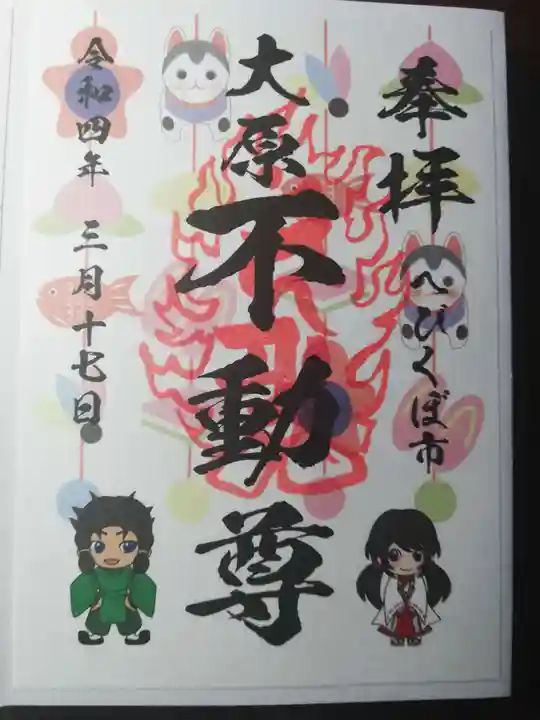 奉拝
へびくぼ市
大原不動尊
令和四年 三月十七日